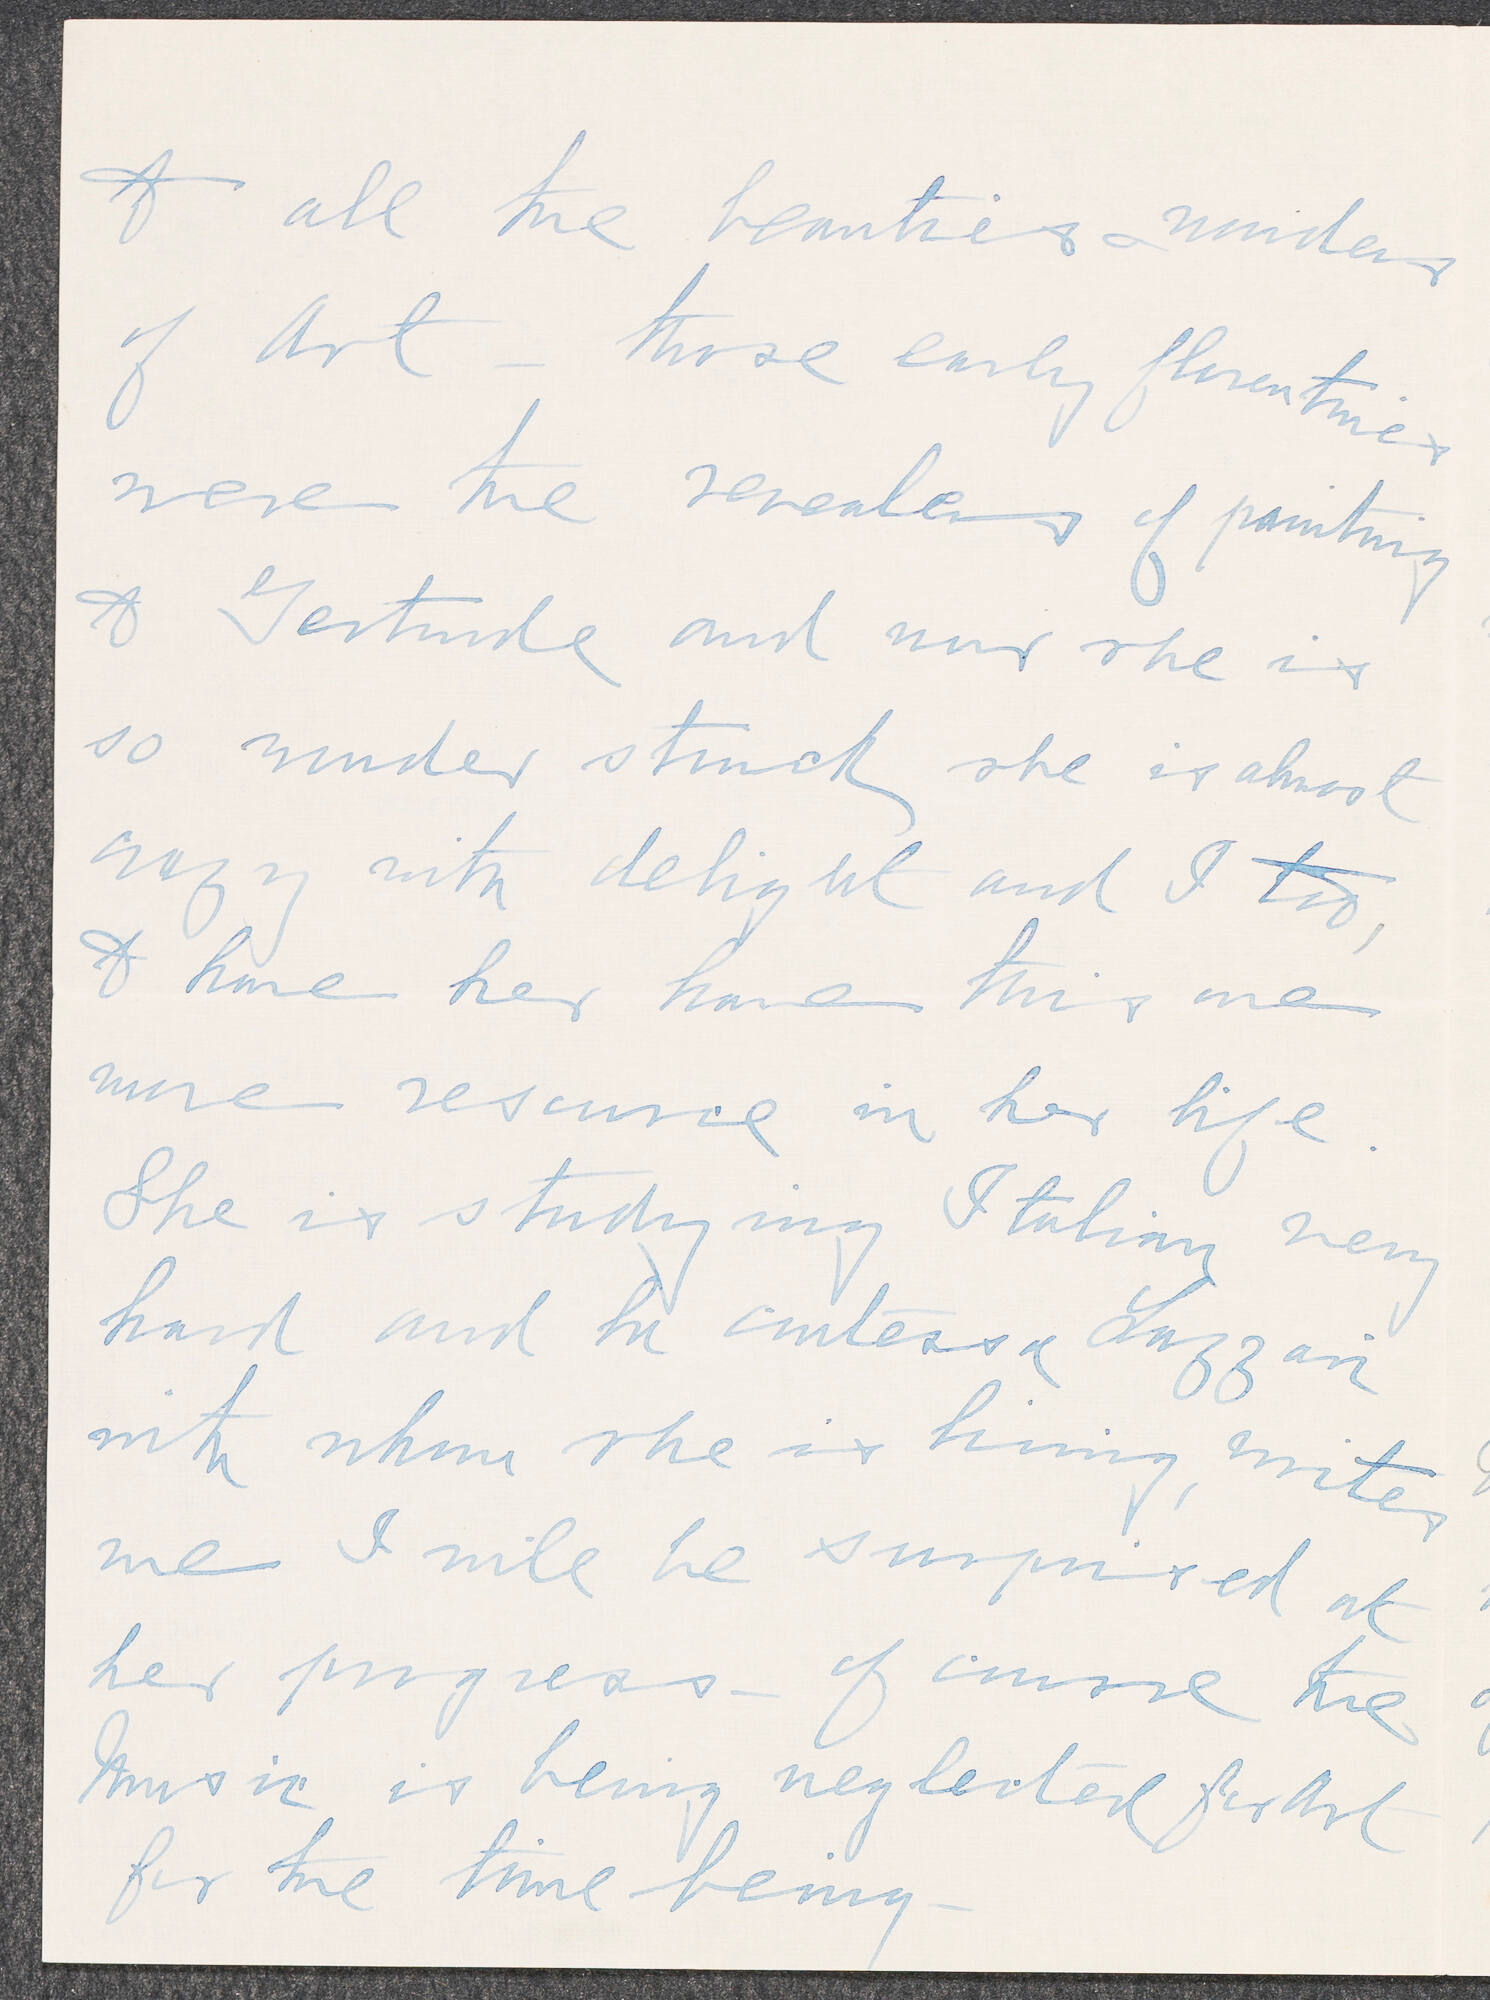 to all the beauties & wonders
of Art – those early florentines
were the revealers of painting
to Gertrude and now she is
so wonder struck she is almost
crazy with delight and I too,
to have her have this one
more resource in her life.
She is studying Italian very
hard and la contessa Lazzari
with whom she is living, writes
me I will be surprised at
her progress – of course the
Music is being neglected for Art
for the time being –